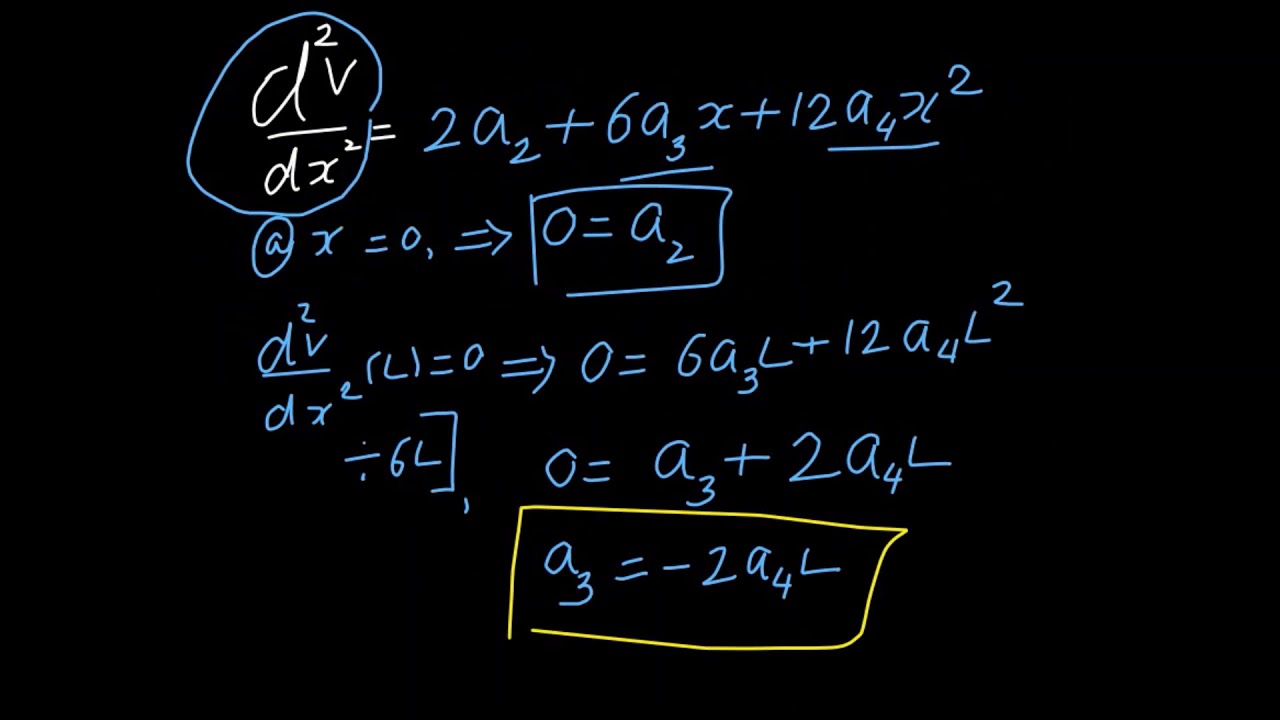 d²v/dx² = 2a₂ + 6a₃x + 12a₄x²
@ x = 0, ⇒ 0 = a₂
d²v/dx² (L) = 0 ⇒ 0 = 6a₃L + 12a₄L²
÷ 6L], 0 = a₃ + 2a₄L
a₃ = - 2a₄L